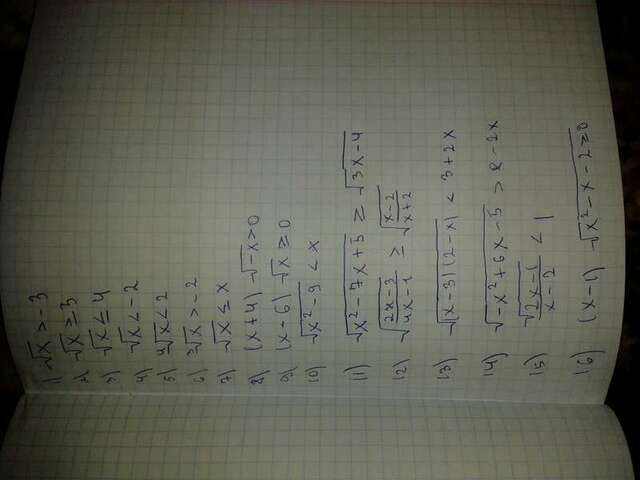 1) √x > -3
2) √x ≥ 3
3) √x ≤ 4
4) √x < -2
5) ∜x < 2
6) ∛x > -2
7) √x ≤ x
8) (x+4) √-x > 0
9) (x+6) √x ≥ 0
10) √(x²-9) < x
11) √(x²-7x+5) ≥ √(3x-4)
12) √((2x-3)/(4x-1)) ≥ √((x-2)/(x+2))
13) √((x-3)(2-x)) < 3+2x
14) √(-x²+6x-5) > 8-2x
15) √(2x-1)/(x-2) < 1
16) (x-1) √(x²-x-2) ≥ 0